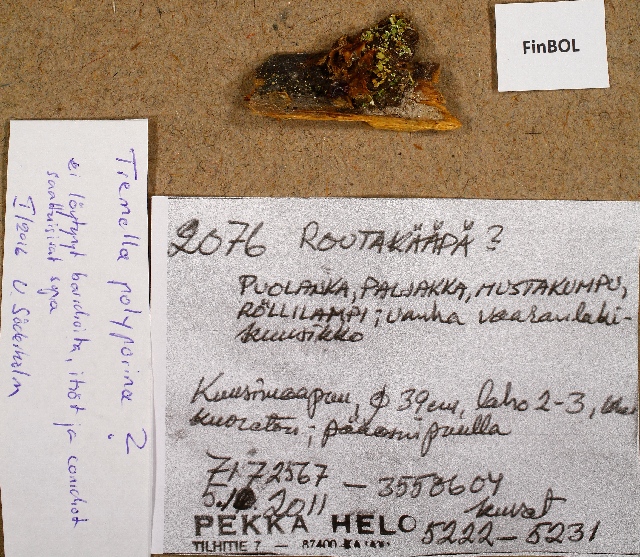 FinBOL
Tremella polyporina ?
ei löytynyt kantoja, itiöt ja
saattaisivat sopia
I/2016 U. Söderholm
2076 ROUTAKÄÄPÄ ?
PUOLANKA, PALJAKKA, MUSTAKUMPU,
RÖLLILAMPI; vanha vaaranlaki-
kuusikko
Kuusimaapuu, ϕ 39 cm, laho 2-3,
kuoraton; pääosin puulla
7172567 — 3550604
5.10 2011 kuvat
PEKKA HELO 5222-5231
TILHITIE 7 — 87400 KAJAANI